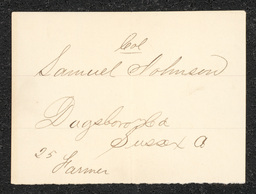 Col
Samuel Johnson
Dagsboro Hd
Sussex
25
Farmer